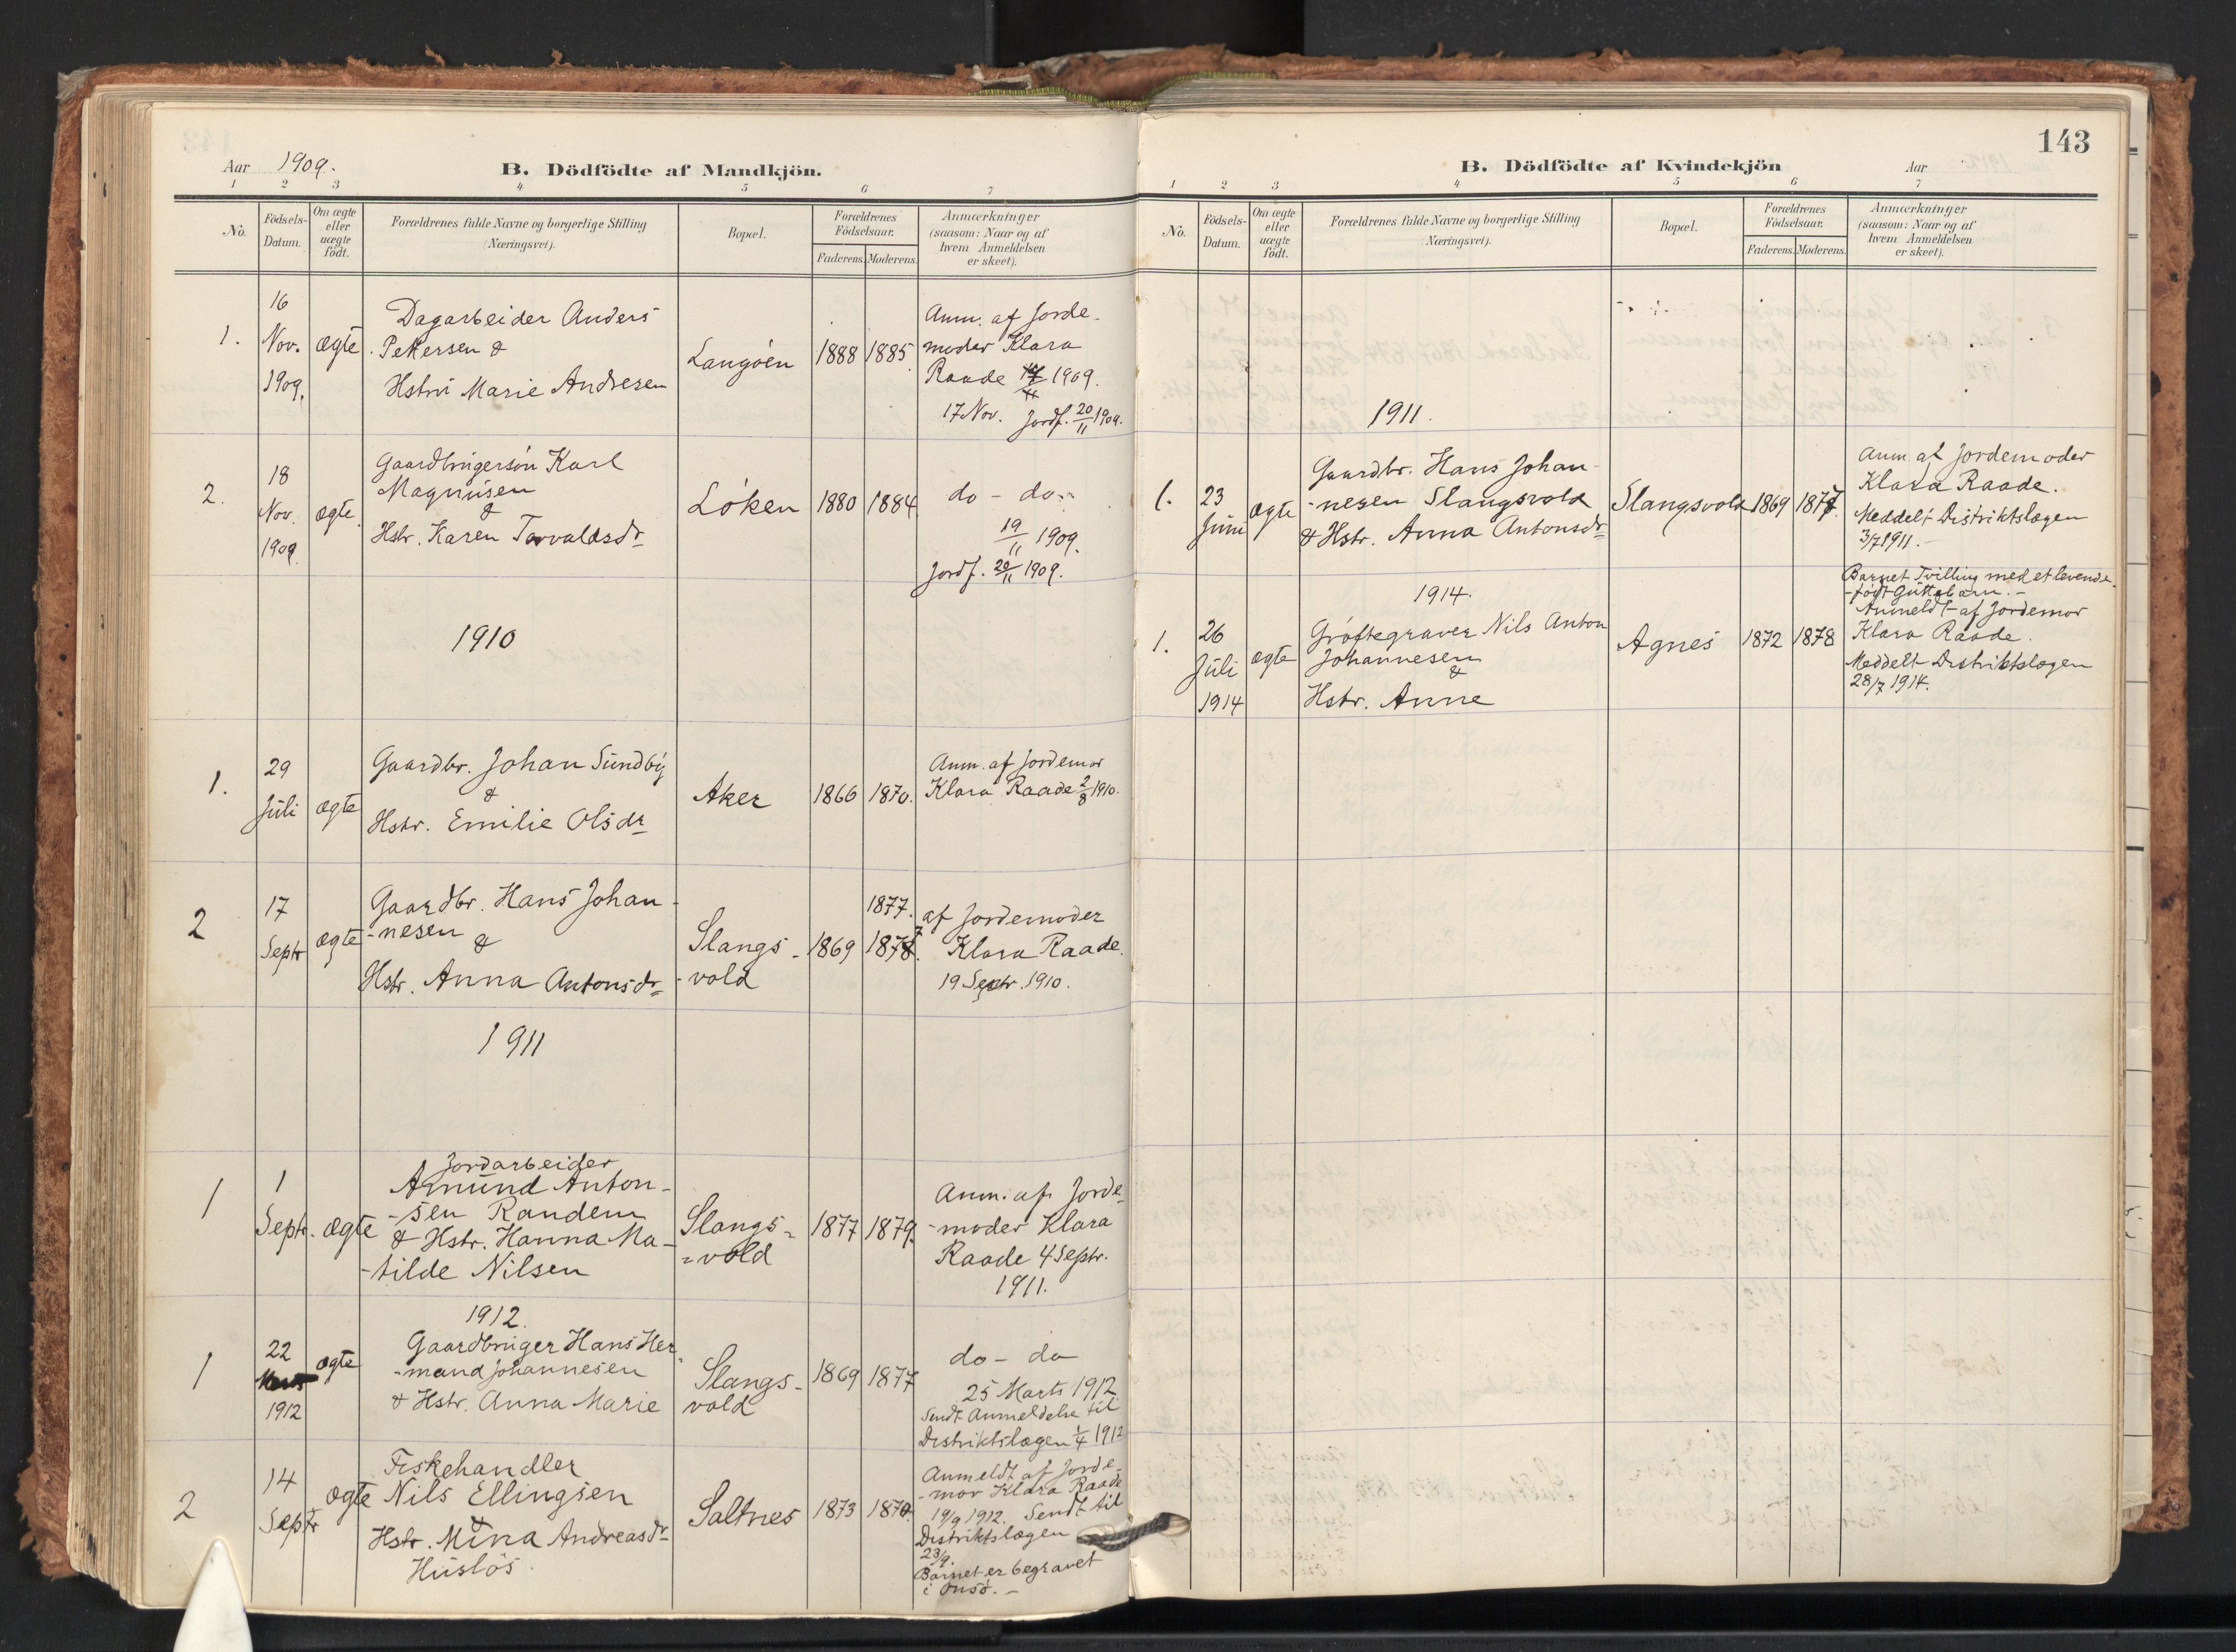 Aar 1909.
B. Dödfödte af Mandkjön.
1 2 3 4 5 6 7
No.
Födsels-
Datum.
Om ægte
eller
uægte
födt.
Forældrenes fulde Navne og borgerlige Stilling
(Næringsvei).
Bopæl.
Forældrenes
Födselsaar.
Faderens. Moderens.
Anmærkninger
(saasom: Naar og af
hvem Anmeldelsen
er skeet).
1.
16
Nov.
1909.
ægte.
Dagarbeider Anders
Pettersen &
Hstru Marie Andresen
Langøen
1888
1885.
Anm. af Jorde-
moder Klara
Raade 1909.
17 Nov. Jordf. 20/11 1909.
2.
18
Nov.
1909.
ægte.
Gaardbrugersøn Karl
Magnusen
&
Hstr. Karen Torvaldsdr
Løken
1880
1884
do - do.
19/11 1909.
Jordf. 20/11 1909.
1910
1.
29
Juli
ægte
Gaardbr. Johan Sundby
&
Hstr. Emilie Olsdr
Aker
1866
1870.
Anm. af Jordemor
Klara Raade 2/8 1910.
2
17
Septr
ægte
Gaardbr. Hans Johan-
-nesen
&
Hstr. Anna Antonsdr
Slangs-
-vold
1869
1877.
1878.
af Jordemoder
Klara Raade.
19 Septr. 1910.
1911
1
1
Septr.
ægte
Jordarbeider
Amund Anton-
-sen Randem
& Hstr. Hanna Ma-
-tilde Nilsen
Slangs-
-vold
1877
1879.
Anm. af Jorde-
-moder Klara
Raade 4 Septr.
1911.
1912.
1
22
1912
ægte
Gaardbruger Hans Her-
-mand Johannesen
& Hstr. Anna Marie
Slangs-
vold
1869
1877
do - do
25 Marts 1912
Sendt Anmeldelse til
Distriktslægen 1/4 1912
2
14
Septr
ægte
Fiskehandler
Nils Ellingsen
&
Hstr. Mina Andreasdr
Husløs.
Saltnes
1873
1870.
Anmeldt af Jorde-
-mor Klara Raade
19/9 1912. Sendt til
Distriktslægen
23/9.
Barnet er begravet
i Onsø. -
143
B. Dödfödte af Kvindekjön
Aar
1 2 3 4 5 6 7
No.
Födsels-
Datum.
Om ægte
eller
uægte
födt.
Forældrenes fulde Navne og borgerlige Stilling
(Næringsvei).
Bopæl.
Forældrenes
Födselsaar.
Faderens. Moderens.
Anmærkninger
(saasom: Naar og af
hvem Anmeldelsen
er skeet).
1911.
1.
23
Juni
ægte
Gaardbr. Hans Johan-
-nesen Slangsvold
& Hstr. Anna Antonsdr
Slangsvold
1869
1877.
Anm af Jordemoder
Klara Raade.
Meddelt Distriktslægen
3/7 1911.-
1914.
1.
26
Juli
1914
ægte
Grøftegraver Nils Anton
Johannesen
&
Hstr. Anne
Agnes
1872
1878
Barnet Tvilling med et levende-
-født Guttebarn.-
Anmeldt af Jordemor
Klara Raade.
Meddelt Distriktslægen
28/7 1914.